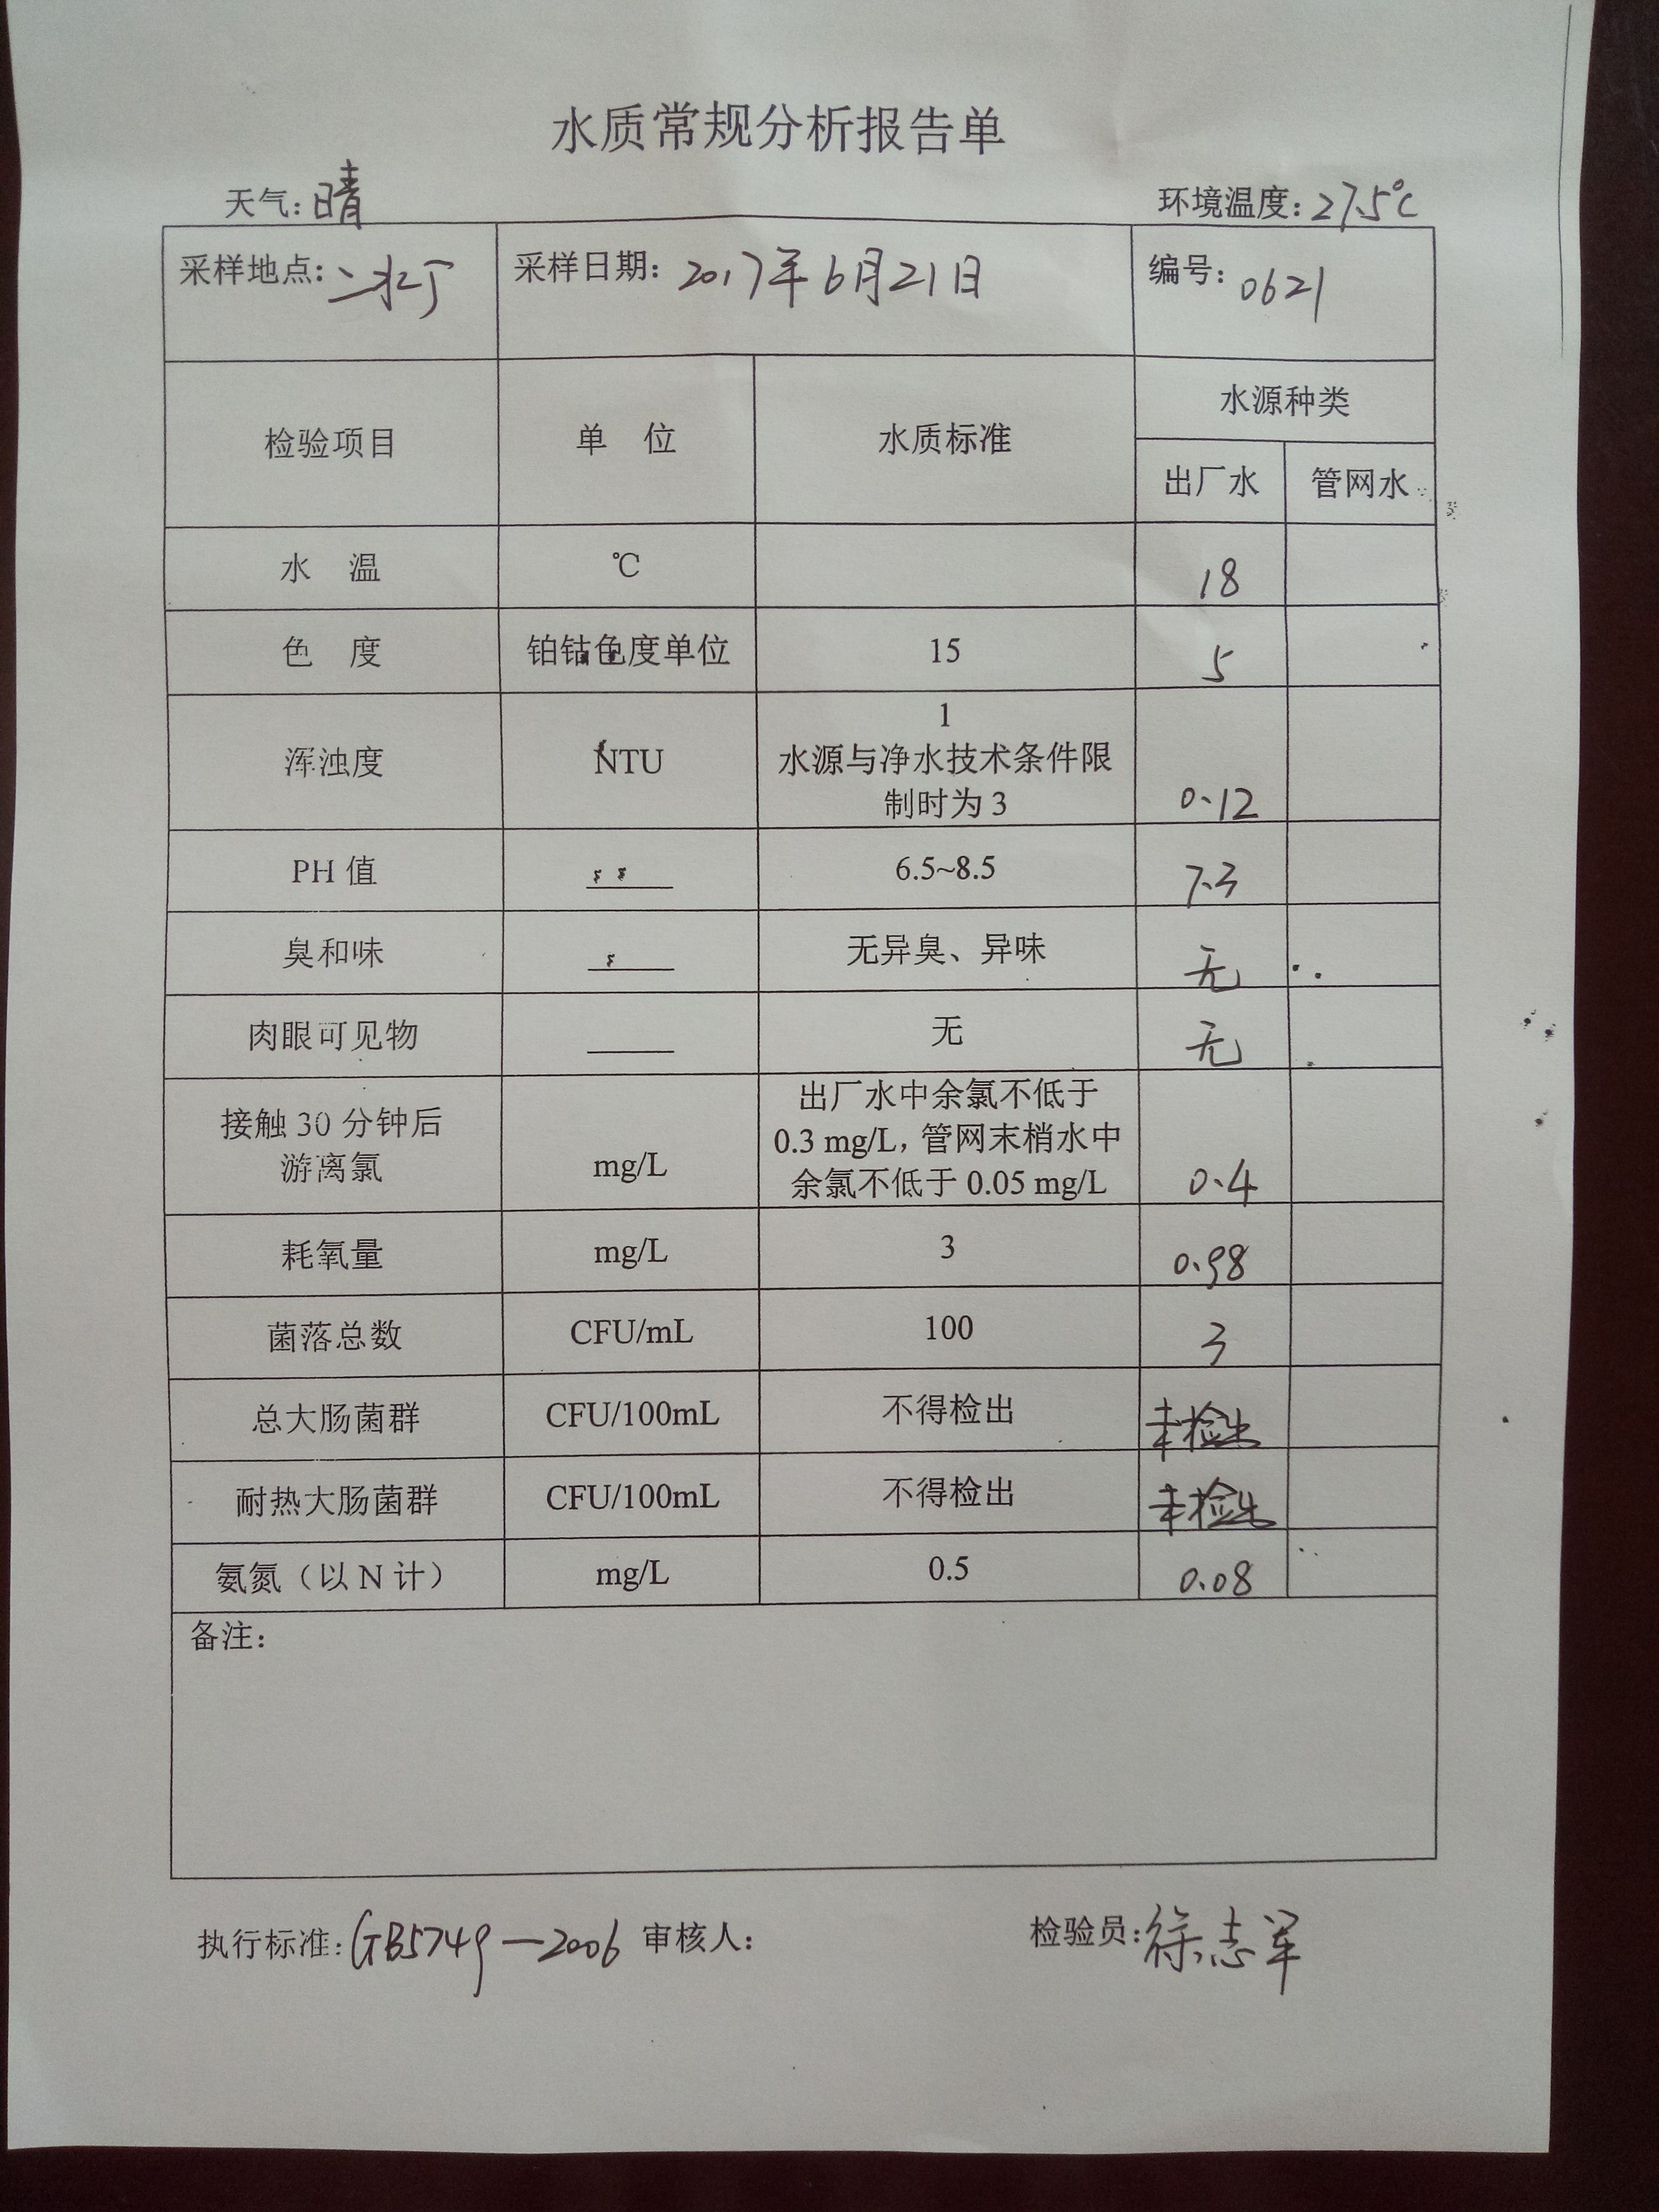 水质常规分析报告单
天气：晴 环境温度：27.5℃
采样地点：二水厂 采样日期：2017年6月21日 编号：0621
检验项目 单 位 水质标准 水源种类
出厂水 管网水
水 温 ℃ 18
色 度 铂钴色度单位 15 5
浑浊度 NTU 1
水源与净水技术条件限
制时为 3 0.12
PH 值 —— 6.5~8.5 7.3
臭和味 —— 无异臭、异味 无
肉眼可见物 —— 无 无
接触 30 分钟后
游离氯 mg/L 出厂水中余氯不低于
0.3 mg/L，管网末梢水中
余氯不低于 0.05 mg/L 0.4
耗氧量 mg/L 3 0.98
菌落总数 CFU/mL 100 3
总大肠菌群 CFU/100mL 不得检出 未检出
耐热大肠菌群 CFU/100mL 不得检出 未检出
氨氮（以 N 计） mg/L 0.5 0.08
备注：
执行标准：GB5749—2006 审核人： 检验员：徐志军